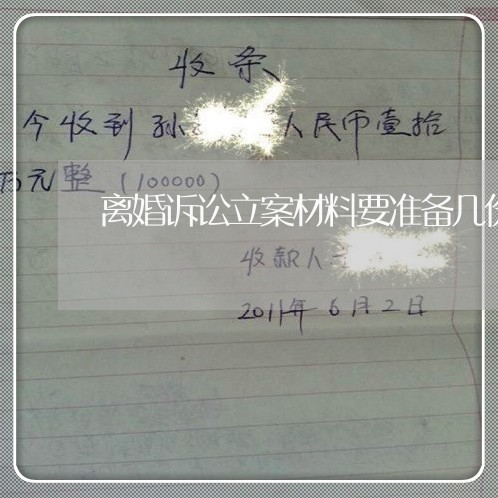 收条
今收到孙 人民币壹拾
万元整(100000)
离婚诉讼立案材料要准备几份
收款人
2011年6月2日